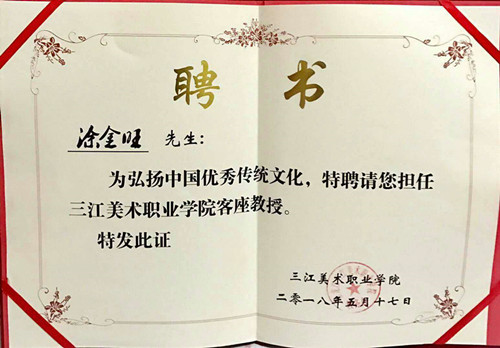 聘书
涂金旺 先生：
为弘扬中国优秀传统文化，特聘请您担任
三江美术职业学院客座教授。
特发此证
三江美术职业学院
二零一八年五月十七日